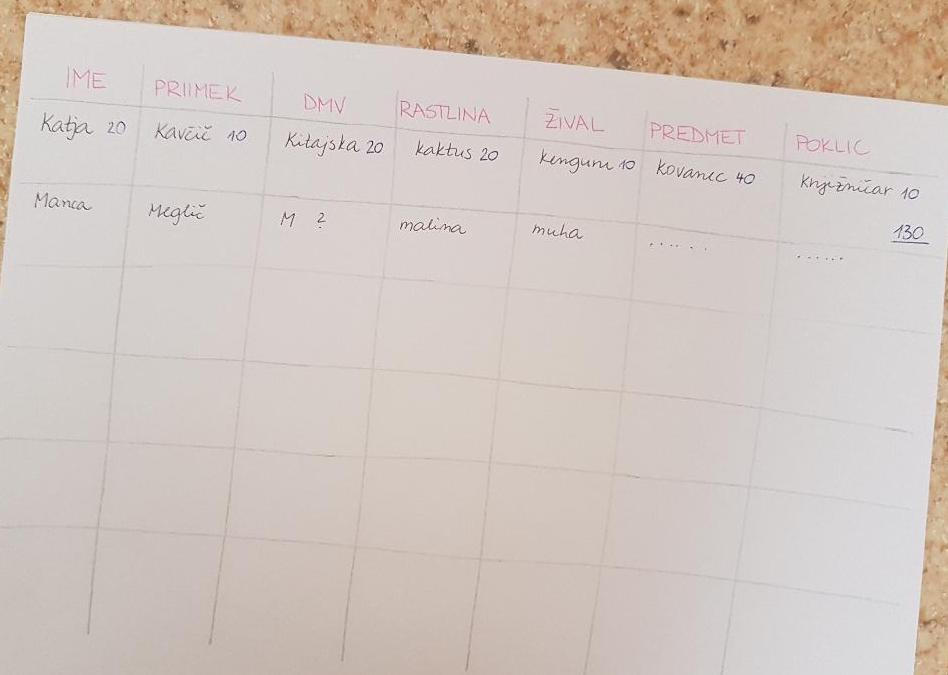 IME PRIIMEK DMV RASTLINA ŽIVAL PREDMET POKLIC
Katja 20 Kavčič 10 Kitajska 20 kaktus 20 kenguru 10 kovanec 40 knjižničar 10
130
Manca Meglič M ? malina muha ...... ......